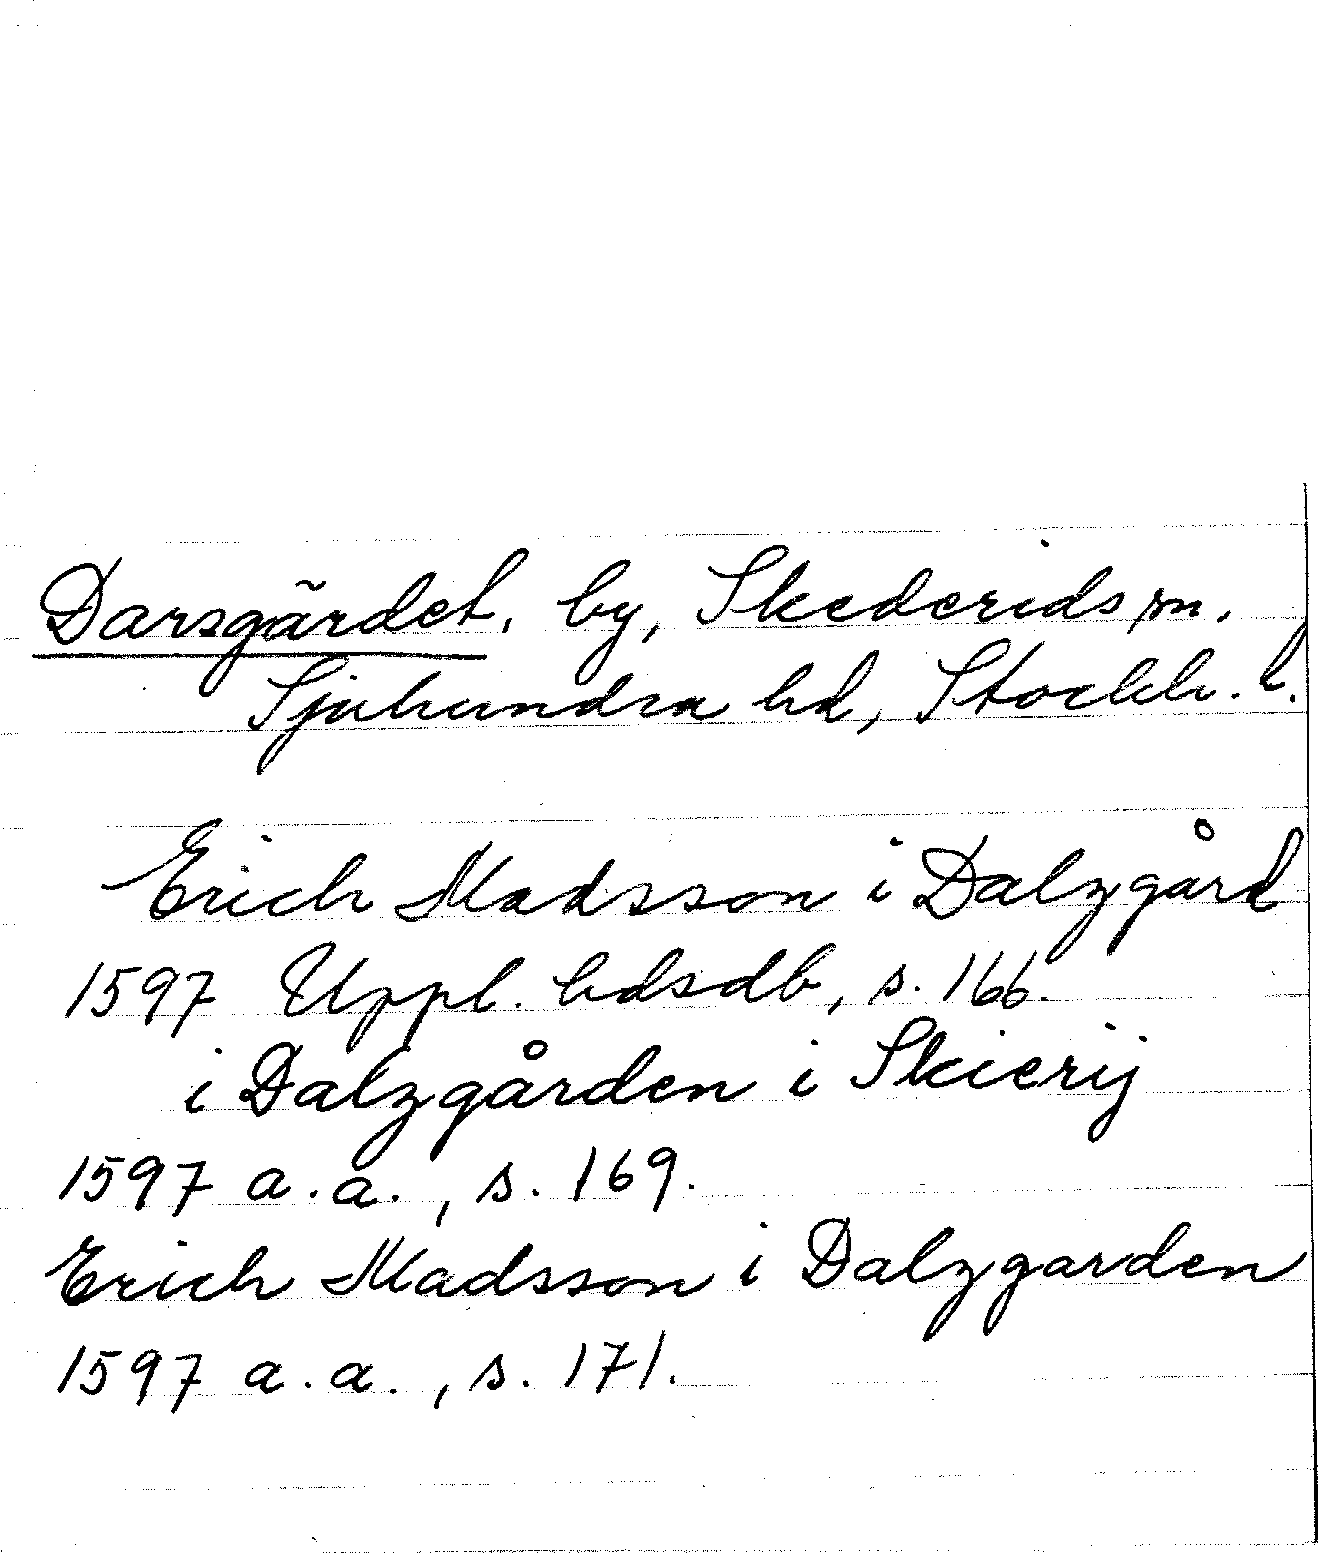 Darsgärdet, by, Skederids sn.
Sjuhundra hd, Stockh. l.
Erich Madsson i Dalzgård
1597 Uppl. hdsdb, s. 166.
i Dalzgården i Skierij
1597 a.a., s. 169.
Erich Madsson i Dalzgarden
1597 a.a., s. 171.